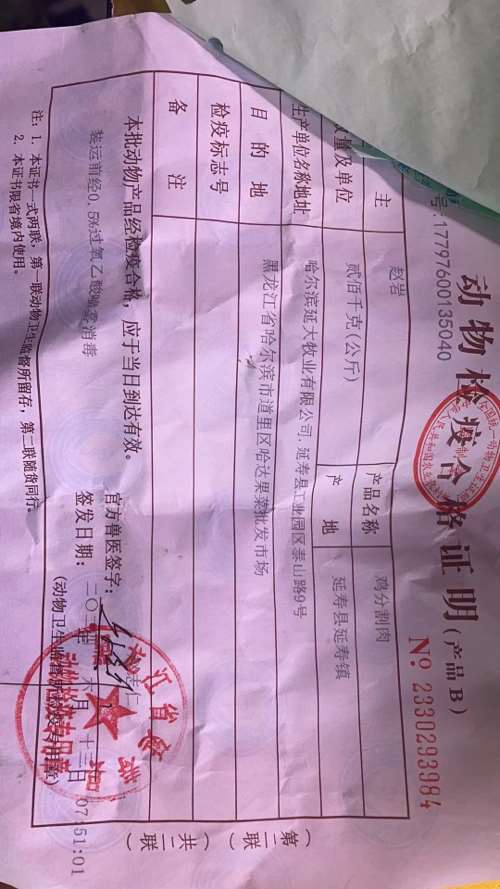 动物检疫合格证明(产品 B)
号:17797600135040
№ 2330293984
主 赵岩 产品名称 鸡分割肉
数量及单位 贰佰千克(公斤) 产 地 延寿县延寿镇
生产单位名称地址 哈尔滨延大牧业有限公司.延寿县工业园区泰山路9号
目的地 黑龙江省哈尔滨市道里区哈达果菜批发市场
检疫标志号
备 注
本批动物产品经检疫合格,应于当日到达有效。
装运前经0.5%过氧乙酸喷雾消毒
官方兽医签字:
签发日期: 六月 十三日 07:51:01
(动物卫生监督所检疫专用章)
注:1. 本证书一式两联,第一联动物卫生监督所留存,第二联随货同行。
2. 本证书限省境内使用。
(第二联)
(共二联)